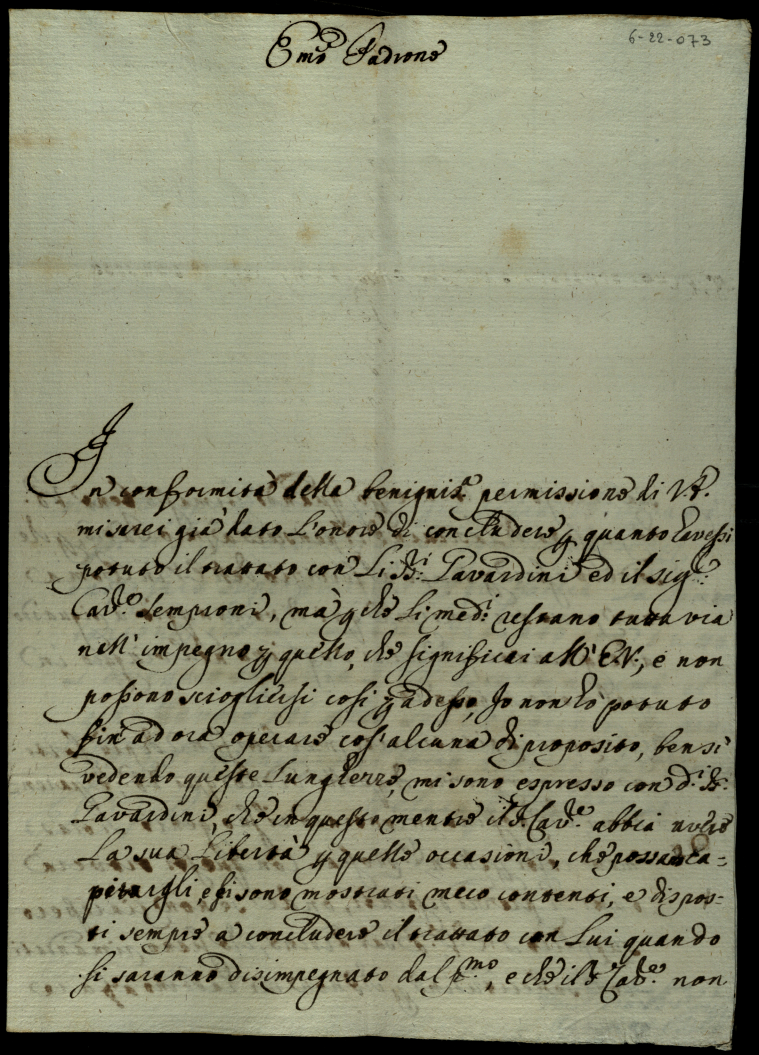 6-22-073
Em.o Padrone
In conformità della benignis.a permissione di V.E.
mi sarei già dato l'onore di concludere p quanto havessi
potuto il trattato con Li SS.ri Pavardini ed il sig.r
Cav.e Semproni, mà p che Li med.i restano tutta via
nell' impegno p quello, che significai all' E.V., e non
possono sciogliersi così p adesso, Io non hò potuto
fin ad ora operare cos' alcuna di proposito, bensì
vedendo queste Lunghezze, mi sono espresso con d.i SS.ri
Pavardini, che in questo mentre il S. Cav.e abbia avere
La sua Libertà p quelle occasioni, che possano ca=
pitargli, e si sono mostrati meco contenti, e dispos=
ti sempre a concludere il trattato con Lui quando
si saranno disimpegnato dal p.mo, e che il S. Cav.e non